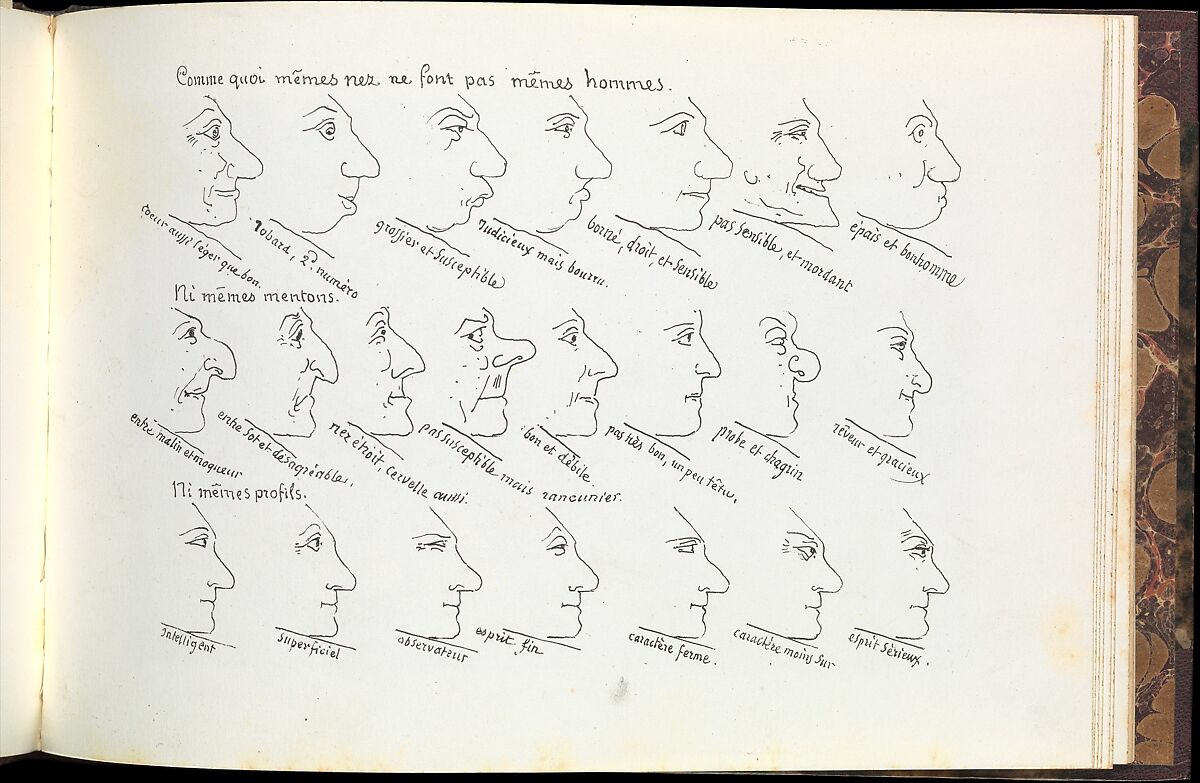 Comme quoi mêmes nez ne font pas mêmes hommes.
coeur aussi léger que bon.
Jobard, 2e. numéro
grossier et susceptible
Judicieux mais bourru.
borné, droit, et sensible
pas sensible, et mordant
épais et bonhomme
Ni mêmes mentons.
entre malin et moqueur
entre sot et désagréable.
nez étroit, cervelle aussi.
pas susceptible mais rancunier.
bon et débile.
pas très bon, un peu têtu.
probe et chagrin
rêveur et gracieux
Ni mêmes profils.
Intelligent
superficiel
observateur
esprit fin
caractère ferme.
caractère moins sur
esprit sérieux.